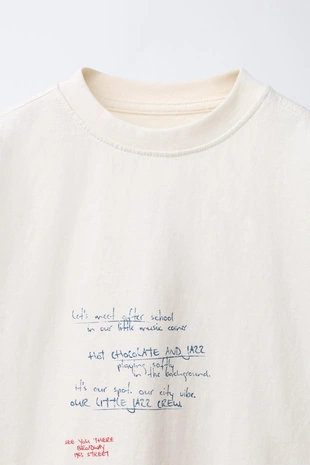 Let's meet after school
in our little music corner
HOT CHOCOLATE AND JAZZ
playing softly
in the background.
It's our spot. our city vibe.
OUR LITTLE JAZZ CREW
SEE YOU THERE
BROADWAY
STREET